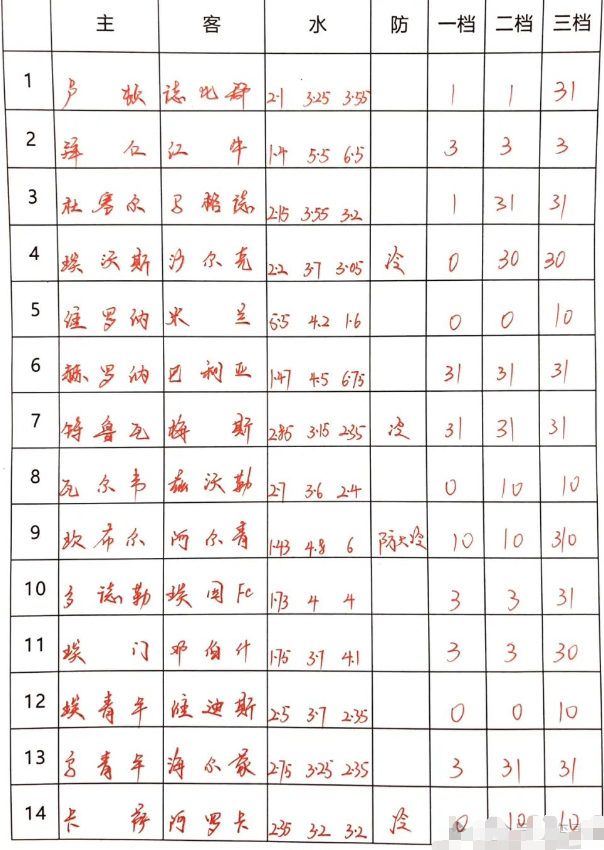 主 客 水 防 一档 二档 三档
1 卢 顿 诺比郡 2.1 3.25 3.55 1 1 31
2 拜仁 红牛 1.4 5.5 6.5 3 3 3
3 杜塞尔 马格德 2.15 3.55 3.2 1 31 31
4 埃沃斯 沙尔克 2.2 3.7 3.05 冷 0 30 30
5 维罗纳 米兰 5.5 4.2 1.6 0 0 10
6 赫罗纳 巴利亚 1.47 4.5 6.75 31 31 31
7 特鲁瓦 梅斯 2.85 3.15 2.35 冷 31 31 31
8 瓦尔韦 兹沃勒 2.7 3.6 2.4 0 10 10
9 坎布尔 阿尔青 1.43 4.8 6 防大冷 10 10 310
10 多德勒 埃因Fc 1.73 4 4 3 3 31
11 埃门 邓伯什 1.75 3.7 4.1 3 3 30
12 埃青年 维迪斯 2.5 3.7 2.35 0 0 10
13 乌青年 海尔蒙 2.75 3.25 2.35 3 31 31
14 卡萨 阿罗卡 2.35 3.2 3.2 冷 0 10 10